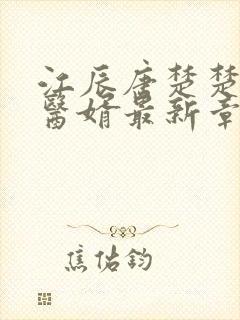 江辰唐楚楚
醫婿最新章
焦佑鈞